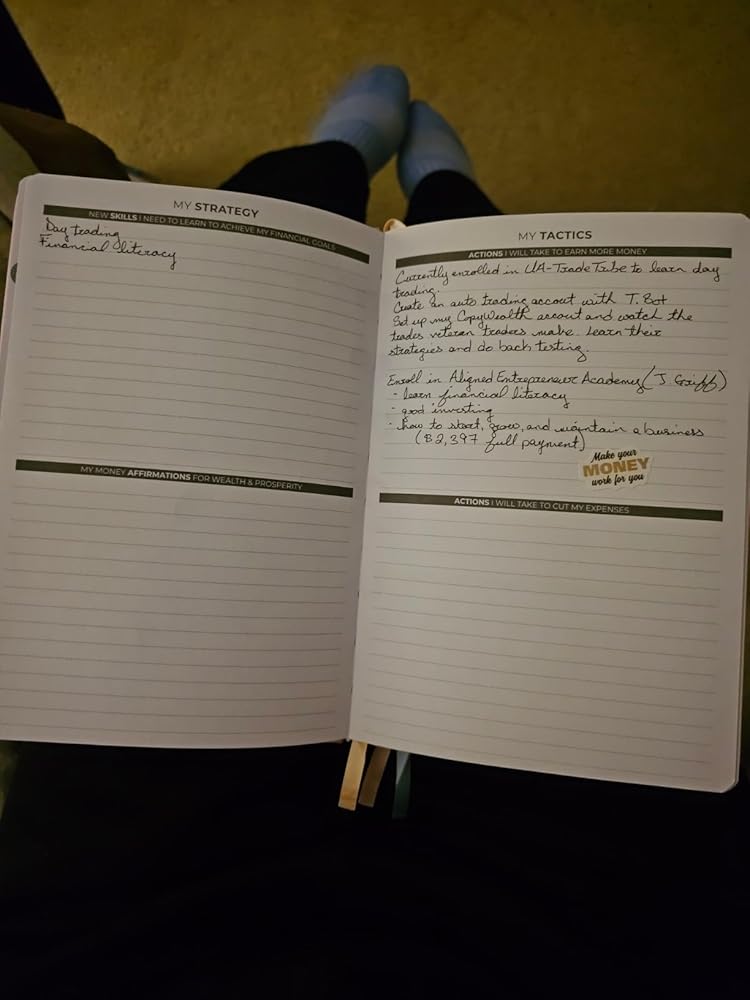 MY STRATEGY
NEW SKILLS I NEED TO LEARN TO ACHIEVE MY FINANCIAL GOALS
Day trading
Financial literacy
MY MONEY AFFIRMATIONS FOR WEALTH & PROSPERITY
MY TACTICS
ACTIONS I WILL TAKE TO EARN MORE MONEY
Currently enrolled in UA-TradeTribe to learn day
trading.
Create an auto trading accout with T.Bot
Set up my CopyWealth accout and watch the
trades veteran traders make. Learn their
strategies and do back testing.
Enroll in Aligned Entrepreneur Academy (J Griff)
- learn financial literacy
- good investing
- how to start, grow, and maintain a business
($2,397 full payment)
Make your
MONEY
work for you
ACTIONS I WILL TAKE TO CUT MY EXPENSES